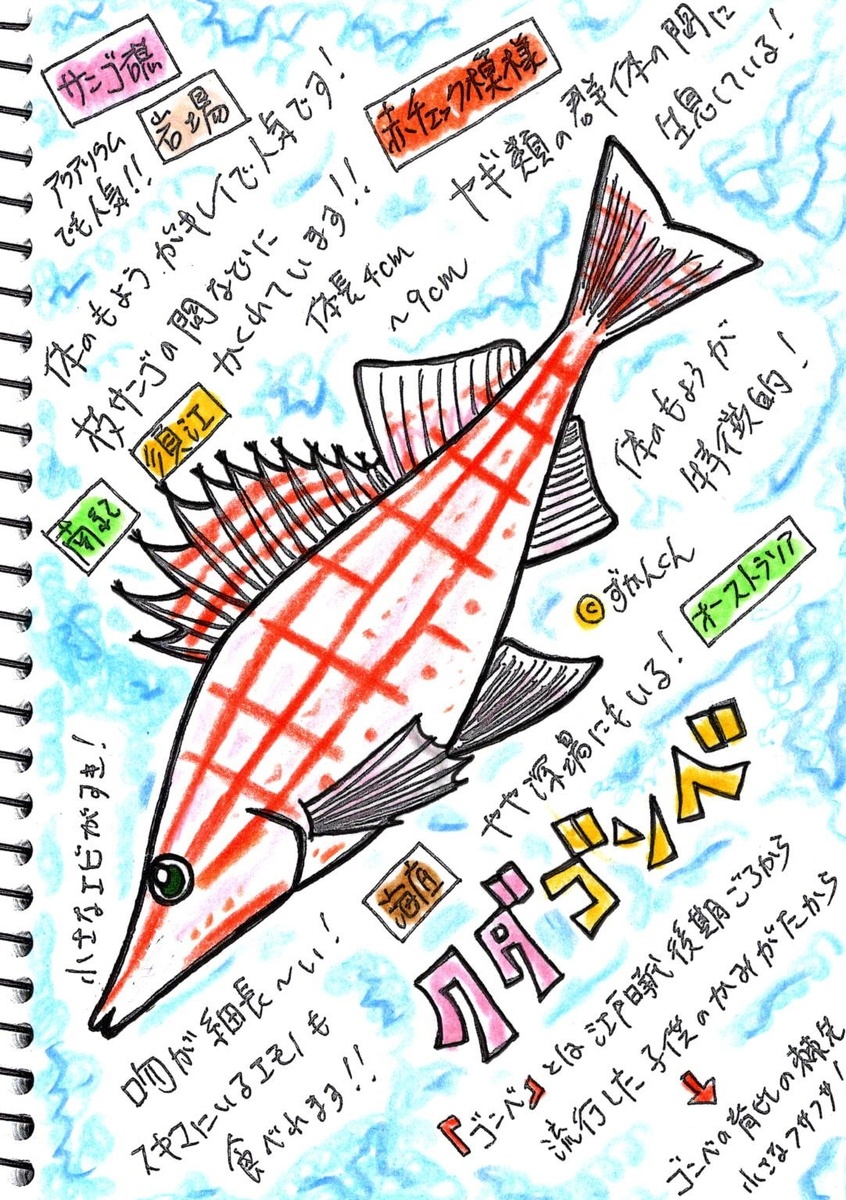 サンゴ礁
岩場
アクアリウム
でも人気!!
赤チェック模様
ヤギ類の群体の間に
生息している!
体のもようがキレイで人気です!
枝サンゴの間などに
かくれています!!
体長4cm
~9cm
須江
南まで
体のもようが
特徴的!
©ずかんくん
オーストラリア
やや深場にもいる!
小さなエビがすき!
海底
クダゴンベ
吻が細長~い!
スキマにいるエモノも
食べれます!!
『ゴンベ』とは江戸時代後期ごろから
流行した子供のかみがたから
ゴンベの背ビレの棘先
小さなフサフサ!